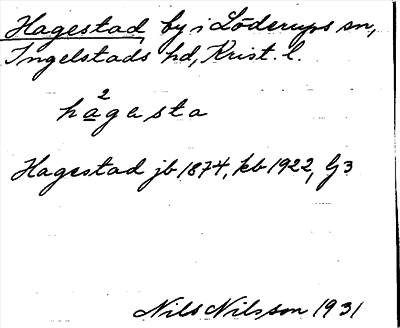 Hagestad, by i Löderups sn,
Ingelstads hd, Krist. l.
ha²gasta
Hagestad jb 1874, kb 1922, G3
Nils Nilsson 1931